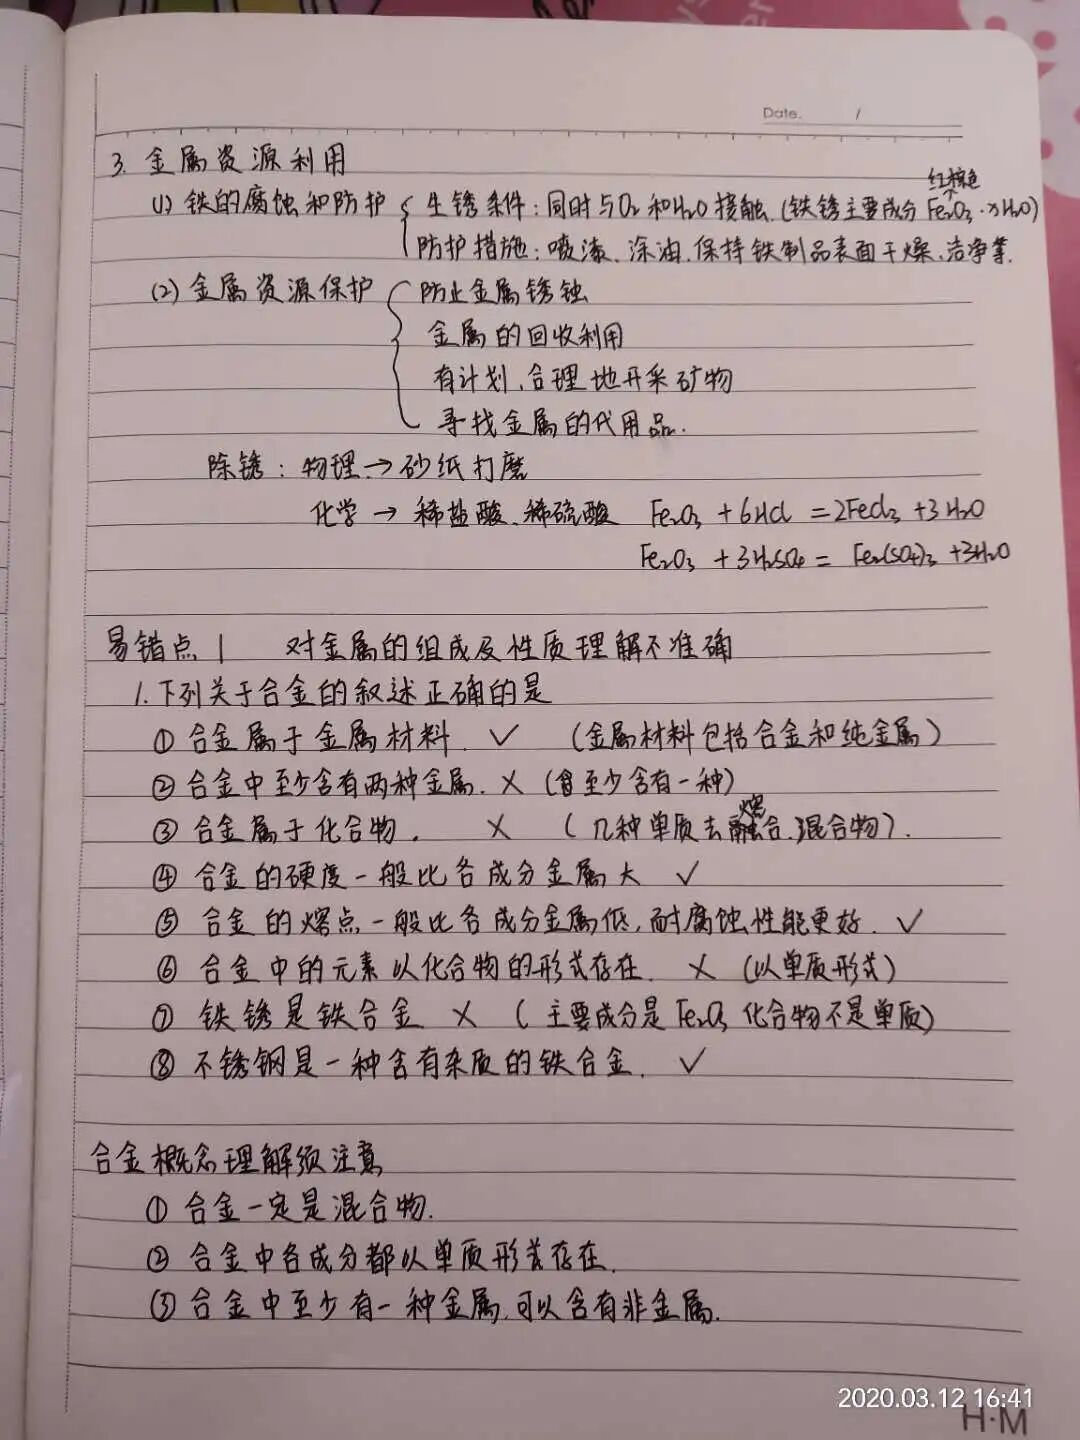 Date. /
3. 金属资源利用
红棕色
(1) 铁的腐蚀和防护 { 生锈条件：同时与O₂和H₂O接触.(铁锈主要成分 Fe₂O₃·xH₂O)
防护措施：喷漆、涂油、保持铁制品表面干燥、洁净等.
(2) 金属资源保护 { 防止金属锈蚀
金属的回收利用
有计划、合理地开采矿物
寻找金属的代用品.
除锈：物理→砂纸打磨
化学→稀盐酸、稀硫酸 Fe₂O₃+6HCl=2FeCl₃+3H₂O
Fe₂O₃+3H₂SO₄=Fe₂(SO₄)₃+3H₂O
易错点1 对金属的组成及性质理解不准确
1.下列关于合金的叙述正确的是
① 合金属于金属材料. ✓ (金属材料包括合金和纯金属)
② 合金中至少含有两种金属. × (至少含有一种)
③ 合金属于化合物. × (几种单质去熔合.混合物).
④ 合金的硬度一般比各成分金属大 ✓
⑤ 合金的熔点一般比各成分金属低,耐腐蚀性能更好. ✓
⑥ 合金中的元素以化合物的形式存在. × (以单质形式)
⑦ 铁锈是铁合金 × (主要成分是Fe₂O₃ 化合物不是单质)
⑧ 不锈钢是一种含有杂质的铁合金. ✓
合金概念理解须注意
① 合金一定是混合物.
② 合金中各成分都以单质形式存在.
③ 合金中至少有一种金属.可以含有非金属.
2020.03.12 16:41
H·M